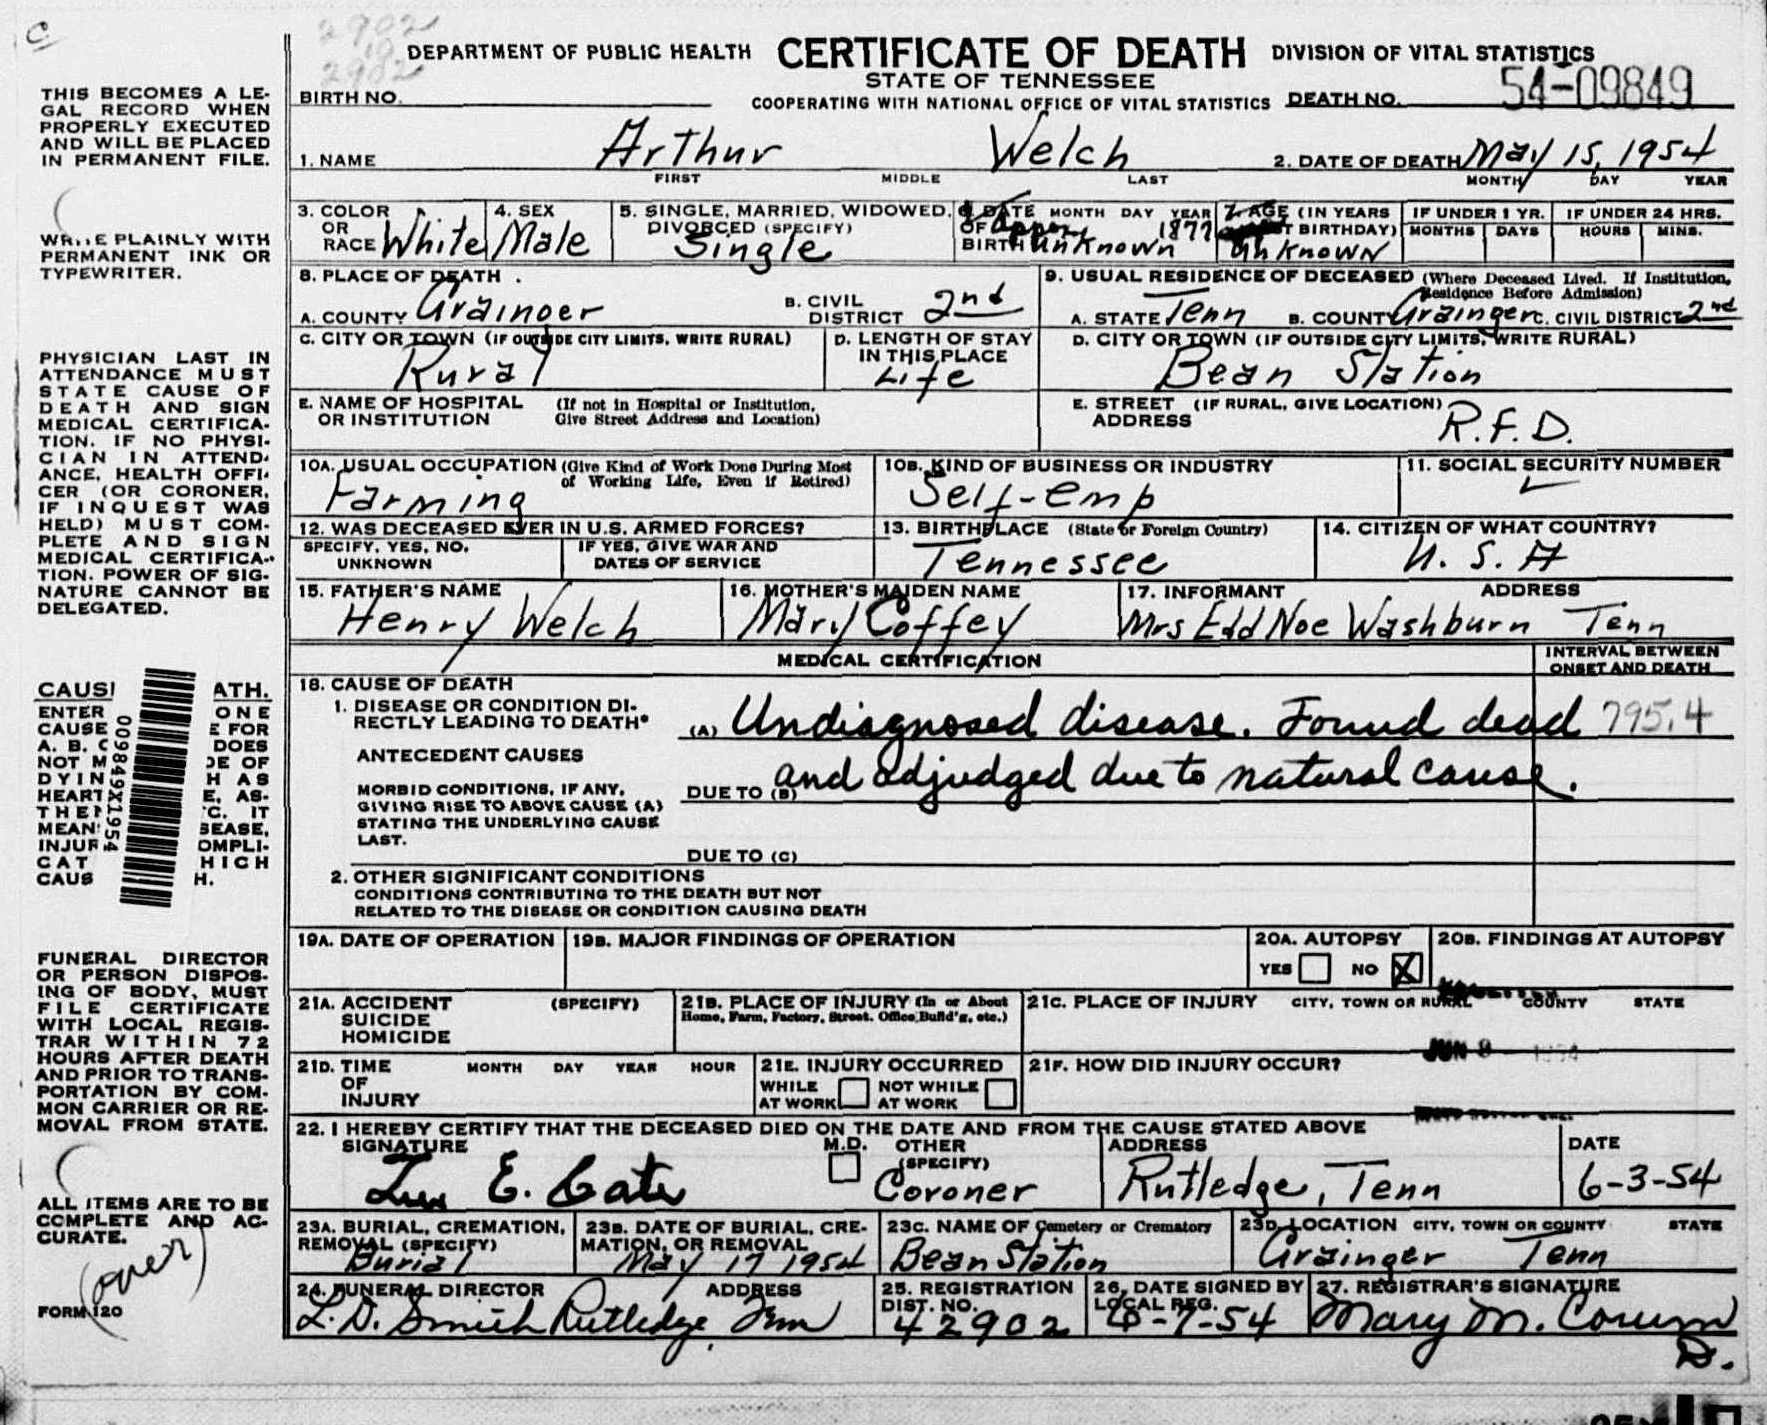 C
2902
10
2902
DEPARTMENT OF PUBLIC HEALTH CERTIFICATE OF DEATH DIVISION OF VITAL STATISTICS
STATE OF TENNESSEE
BIRTH NO. COOPERATING WITH NATIONAL OFFICE OF VITAL STATISTICS DEATH NO. 54-09849
THIS BECOMES A LE-
GAL RECORD WHEN
PROPERLY EXECUTED
AND WILL BE PLACED
IN PERMANENT FILE.
1. NAME Arthur Welch 2. DATE OF DEATH May 15, 1954
FIRST MIDDLE LAST MONTH DAY YEAR
WRITE PLAINLY WITH
PERMANENT INK OR
TYPEWRITER.
3. COLOR OR RACE White
4. SEX Male
5. SINGLE, MARRIED, WIDOWED, DIVORCED (SPECIFY) Single
DATE OF BIRTH MONTH DAY YEAR Appox 1877 Unknown
7. AGE (IN YEARS BIRTHDAY) Unknown
IF UNDER 1 YR. MONTHS DAYS
IF UNDER 24 HRS. HOURS MINS.
8. PLACE OF DEATH
A. COUNTY Grainger B. CIVIL DISTRICT 2nd
9. USUAL RESIDENCE OF DECEASED (Where Deceased Lived. If Institution, Residence Before Admission)
A. STATE Tenn B. COUNTY Grainger C. CIVIL DISTRICT 2nd
C. CITY OR TOWN (IF OUTSIDE CITY LIMITS, WRITE RURAL) Rural
D. LENGTH OF STAY IN THIS PLACE Life
D. CITY OR TOWN (IF OUTSIDE CITY LIMITS, WRITE RURAL) Bean Station
E. NAME OF HOSPITAL OR INSTITUTION (If not in Hospital or Institution, Give Street Address and Location)
E. STREET ADDRESS (IF RURAL, GIVE LOCATION) R.F.D.
PHYSICIAN LAST IN
ATTENDANCE MUST
STATE CAUSE OF
DEATH AND SIGN
MEDICAL CERTIFICA-
TION. IF NO PHYSI-
CIAN IN ATTEND-
ANCE, HEALTH OFFI-
CER (OR CORONER,
IF INQUEST WAS
HELD) MUST COM-
PLETE AND SIGN
MEDICAL CERTIFICA-
TION. POWER OF SIG-
NATURE CANNOT BE
DELEGATED.
10A. USUAL OCCUPATION (Give Kind of Work Done During Most of Working Life, Even if Retired) Farming
10B. KIND OF BUSINESS OR INDUSTRY Self-emp
11. SOCIAL SECURITY NUMBER
12. WAS DECEASED EVER IN U.S. ARMED FORCES?
SPECIFY, YES, NO, UNKNOWN
IF YES, GIVE WAR AND DATES OF SERVICE
13. BIRTHPLACE (State or Foreign Country) Tennessee
14. CITIZEN OF WHAT COUNTRY? U.S.A
15. FATHER'S NAME Henry Welch
16. MOTHER'S MAIDEN NAME Mary Coffey
17. INFORMANT ADDRESS Mrs Edd Noe Washburn Tenn
MEDICAL CERTIFICATION
INTERVAL BETWEEN ONSET AND DEATH
18. CAUSE OF DEATH
1. DISEASE OR CONDITION DI-
RECTLY LEADING TO DEATH* (A) Undiagnosed disease. Found dead 795.4
ANTECEDENT CAUSES
MORBID CONDITIONS, IF ANY,
GIVING RISE TO ABOVE CAUSE (A)
STATING THE UNDERLYING CAUSE
LAST.
DUE TO (B) and adjudged due to natural cause.
DUE TO (C)
2. OTHER SIGNIFICANT CONDITIONS
CONDITIONS CONTRIBUTING TO THE DEATH BUT NOT
RELATED TO THE DISEASE OR CONDITION CAUSING DEATH
CAUS ATH.
ENTER ONE
CAUSE E FOR
A. B. C DOES
NOT M DE OF
DYIN H AS
HEART E, AS-
THE C. IT
MEAN SEASE,
INJUR OMPLI-
CAT HICH
CAUS H.
009849X1954
19A. DATE OF OPERATION
19B. MAJOR FINDINGS OF OPERATION
20A. AUTOPSY YES NO X
20B. FINDINGS AT AUTOPSY
FUNERAL DIRECTOR
OR PERSON DISPOS-
ING OF BODY, MUST
FILE CERTIFICATE
WITH LOCAL REGIS-
TRAR WITHIN 72
HOURS AFTER DEATH
AND PRIOR TO TRANS-
PORTATION BY COM-
MON CARRIER OR RE-
MOVAL FROM STATE.
21A. ACCIDENT (SPECIFY)
SUICIDE
HOMICIDE
21B. PLACE OF INJURY (In or About Home, Farm, Factory, Street, Office, Build'g, etc.)
21C. PLACE OF INJURY CITY, TOWN OR RURAL COUNTY STATE
21D. TIME OF INJURY MONTH DAY YEAR HOUR
21E. INJURY OCCURRED
WHILE AT WORK NOT WHILE AT WORK
21F. HOW DID INJURY OCCUR?
JUN 9 1954
22. I HEREBY CERTIFY THAT THE DECEASED DIED ON THE DATE AND FROM THE CAUSE STATED ABOVE
SIGNATURE M.D. OTHER (SPECIFY) ADDRESS DATE
E. Cate Coroner Rutledge, Tenn 6-3-54
ALL ITEMS ARE TO BE
COMPLETE AND AC-
CURATE.
(over)
FORM 120
23A. BURIAL, CREMATION, REMOVAL (SPECIFY) Burial
23B. DATE OF BURIAL, CRE-MATION, OR REMOVAL May 17 1954
23C. NAME OF Cemetery or Crematory Bean Station
23D. LOCATION CITY, TOWN OR COUNTY STATE Grainger Tenn
24. FUNERAL DIRECTOR ADDRESS L.D. Smith Rutledge, Tenn
25. REGISTRATION DIST. NO. 42902
26. DATE SIGNED BY LOCAL REG. 6-7-54
27. REGISTRAR'S SIGNATURE Mary M. Corum
D.